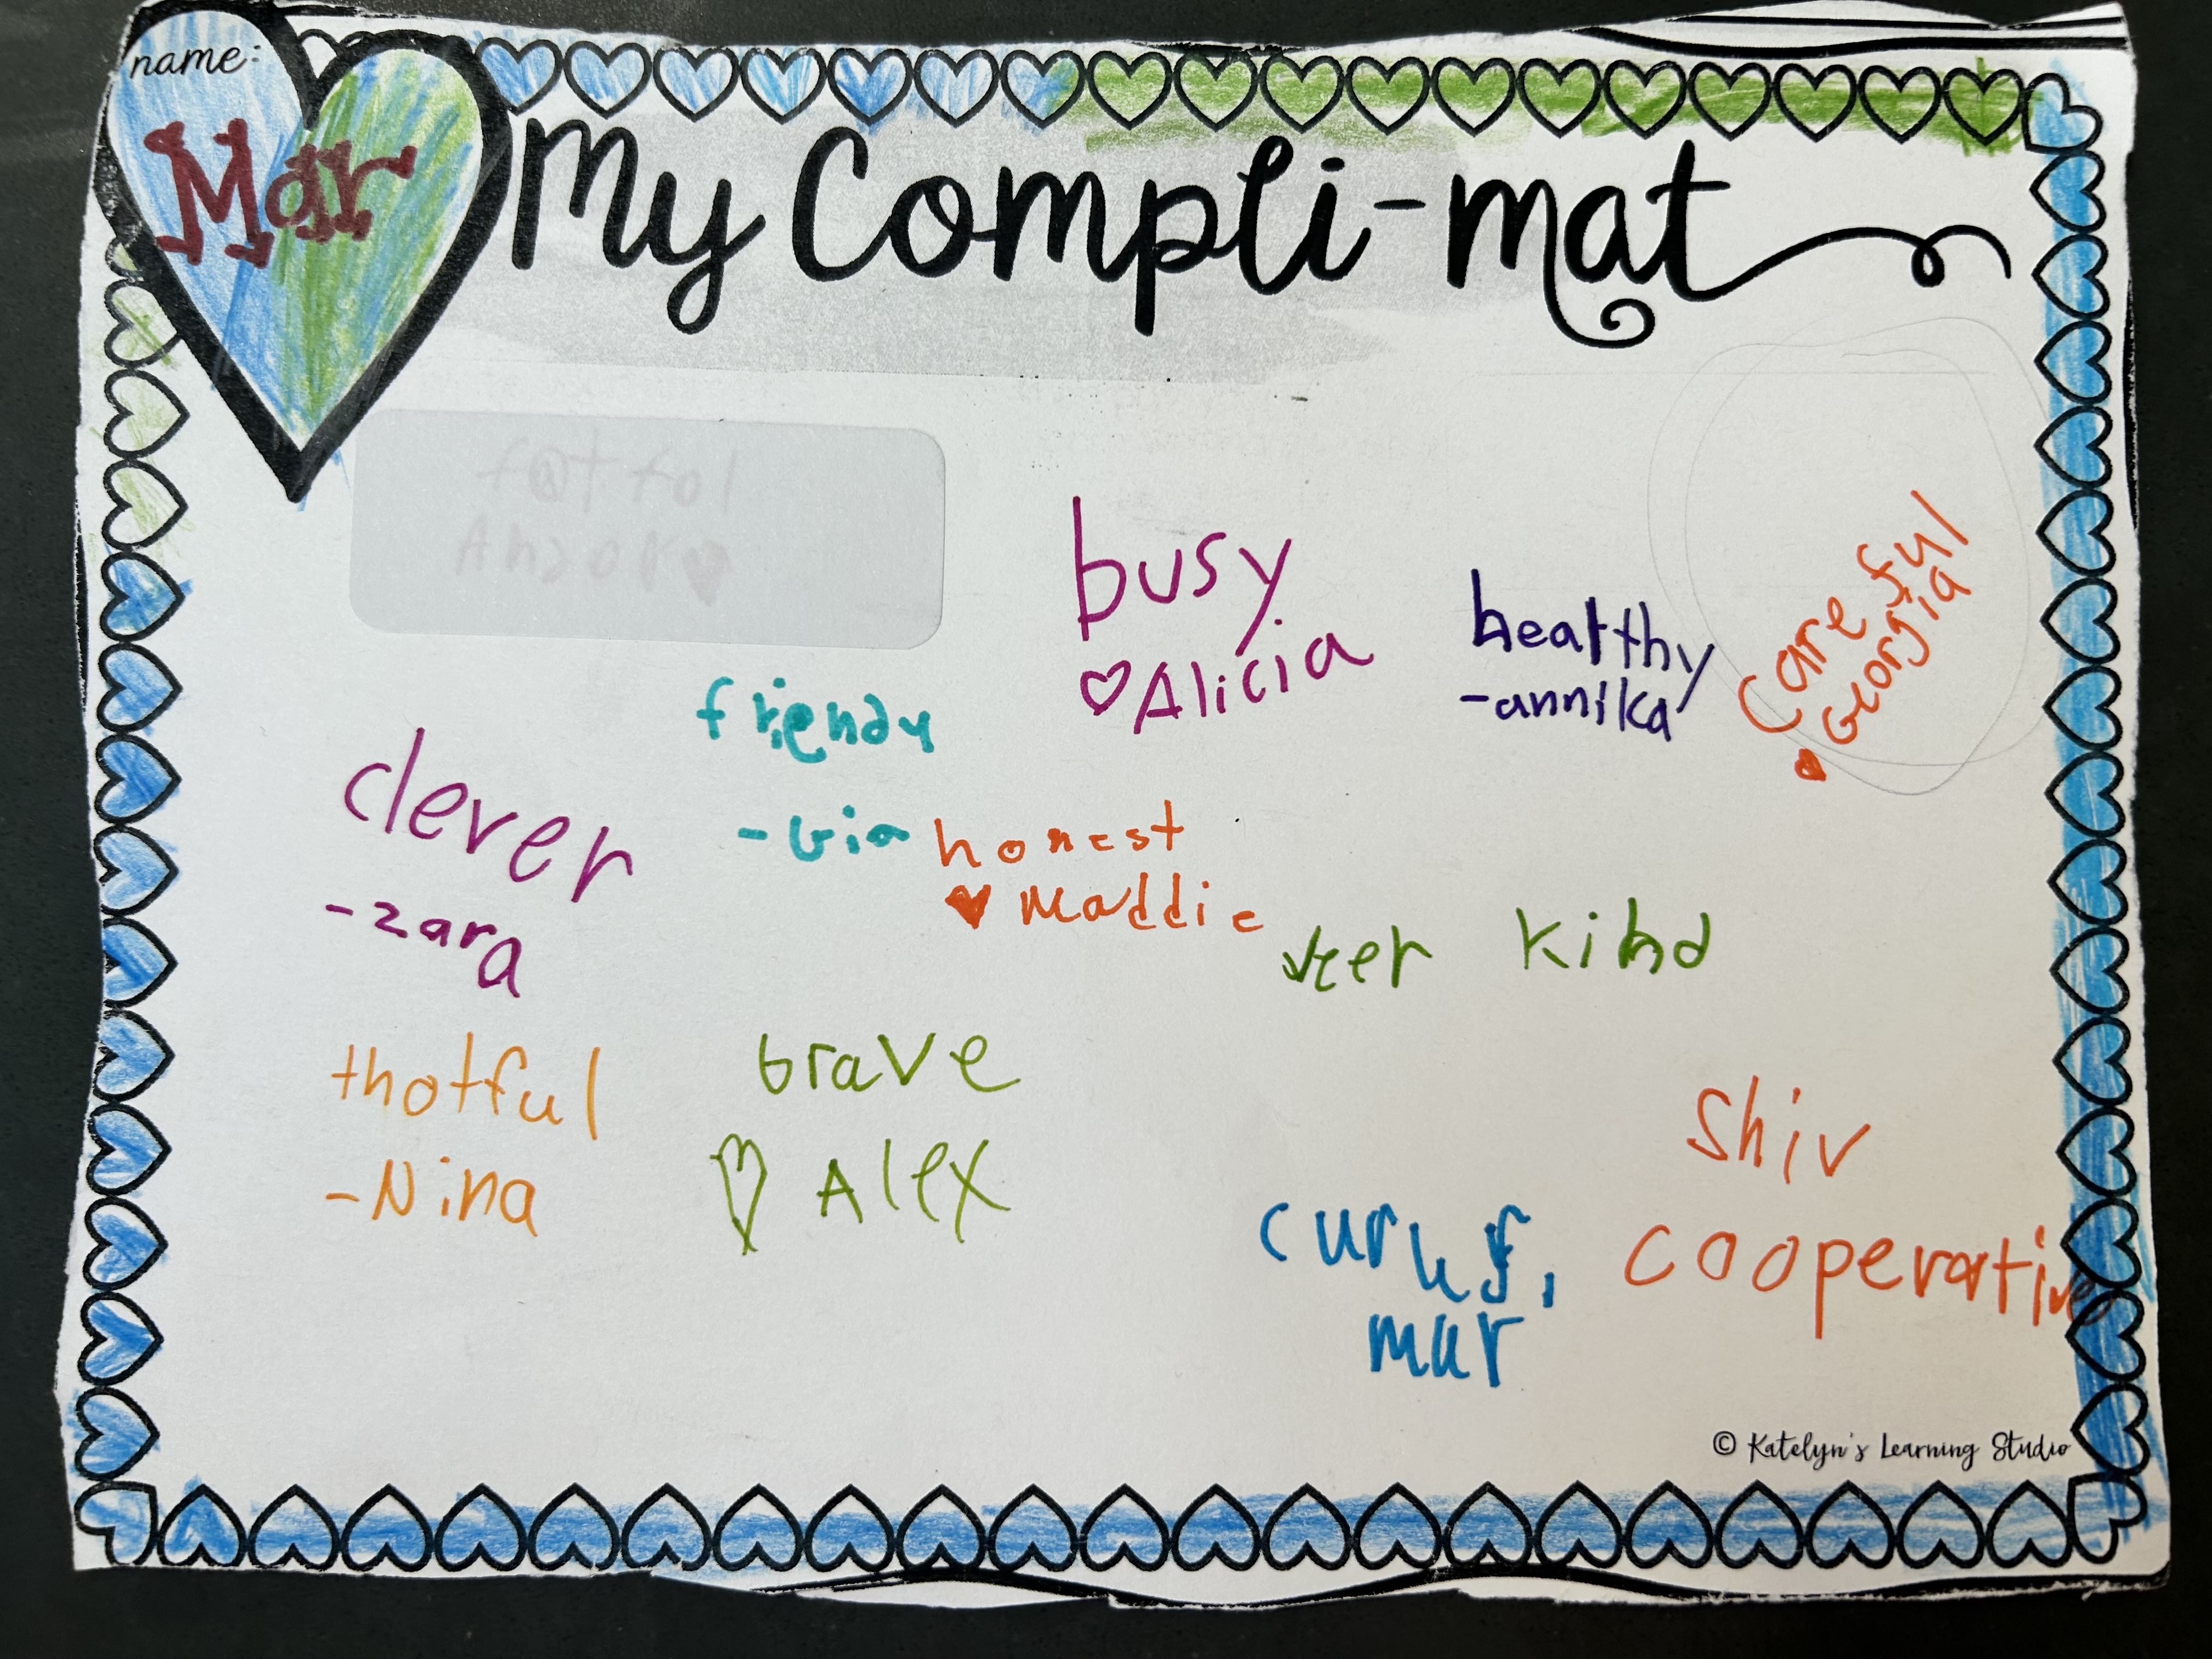 name:
Mar
My Compli-mat
busy
♡ Alicia
healthy
-annika
Careful
♥ Georgia
friendy
-Gia
clever
-zara
honest
♥ Maddie
veer kind
thotful
-Nina
brave
♡ Alex
Shiv
cooperative
mar
© Katelyn's Learning Studio